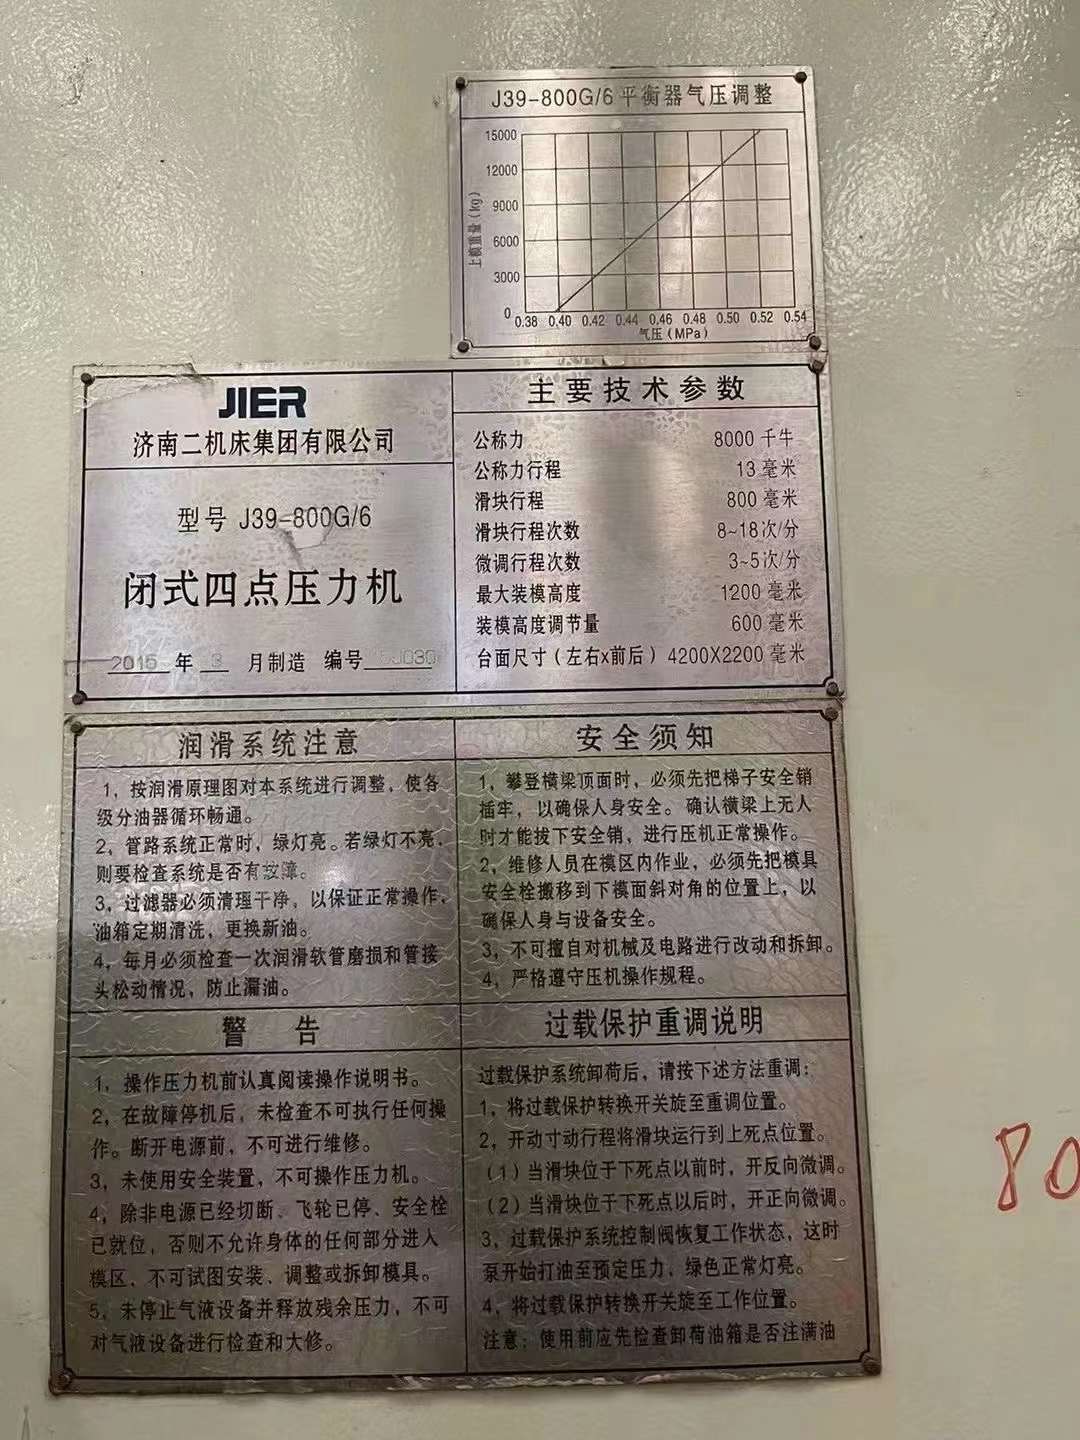 J39-800G/6平衡器气压调整
上模重量(kg)
15000
12000
9000
6000
3000
0
0.38 0.40 0.42 0.44 0.46 0.48 0.50 0.52 0.54
气压(MPa)
JIER
济南二机床集团有限公司
型号 J39-800G/6
闭式四点压力机
年 月制造 编号
主要技术参数
公称力 8000千牛
公称力行程 13毫米
滑块行程 800毫米
滑块行程次数 8~18次/分
微调行程次数 3~5次/分
最大装模高度 1200毫米
装模高度调节量 600毫米
台面尺寸(左右x前后) 4200X2200毫米
润滑系统注意
1，按润滑原理图对本系统进行调整，使各
级分油器循环畅通。
2，管路系统正常时，绿灯亮。若绿灯不亮，
则要检查系统是否有故障。
3，过滤器必须清理干净，以保证正常操作，
油箱定期清洗，更换新油。
4，每月必须检查一次润滑软管磨损和管接
头松动情况，防止漏油。
安全须知
1，攀登横梁顶面时，必须先把梯子安全销
插牢，以确保人身安全。确认横梁上无人
时才能拔下安全销，进行压机正常操作。
2，维修人员在模区内作业，必须先把模具
安全栓搬移到下模面斜对角的位置上，以
确保人身与设备安全。
3，不可擅自对机械及电路进行改动和拆卸。
4，严格遵守压机操作规程。
警告
1，操作压力机前认真阅读操作说明书。
2，在故障停机后，未检查不可执行任何操
作。断开电源前，不可进行维修。
3，未使用安全装置，不可操作压力机。
4，除非电源已经切断、飞轮已停、安全栓
已就位，否则不允许身体的任何部分进入
模区、不可试图安装、调整或拆卸模具。
5，未停止气液设备并释放残余压力，不可
对气液设备进行检查和大修。
过载保护重调说明
过载保护系统卸荷后，请按下述方法重调：
1，将过载保护转换开关旋至重调位置。
2，开动寸动行程将滑块运行到上死点位置。
(1)当滑块位于下死点以前时，开反向微调。
(2)当滑块位于下死点以后时，开正向微调。
3，过载保护系统控制阀恢复工作状态，这时
泵开始打油至预定压力，绿色正常灯亮。
4，将过载保护转换开关旋至工作位置。
注意：使用前应先检查卸荷油箱是否注满油
80